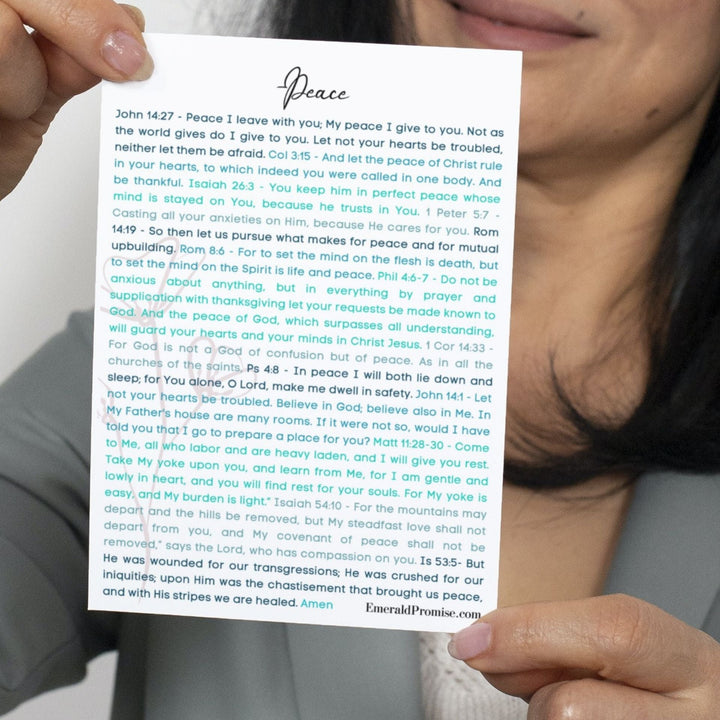 Peace
John 14:27 - Peace I leave with you; My peace I give to you. Not as
the world gives do I give to you. Let not your hearts be troubled,
neither let them be afraid. Col 3:15 - And let the peace of Christ rule
in your hearts, to which indeed you were called in one body. And
be thankful. Isaiah 26:3 - You keep him in perfect peace whose
mind is stayed on You, because he trusts in You. 1 Peter 5:7 -
Casting all your anxieties on Him, because He cares for you. Rom
14:19 - So then let us pursue what makes for peace and for mutual
upbuilding. Rom 8:6 - For to set the mind on the flesh is death, but
to set the mind on the Spirit is life and peace. Phil 4:6-7 - Do not be
anxious about anything, but in everything by prayer and
supplication with thanksgiving let your requests be made known to
God. And the peace of God, which surpasses all understanding,
will guard your hearts and your minds in Christ Jesus. 1 Cor 14:33 -
For God is not a God of confusion but of peace. As in all the
churches of the saints, Ps 4:8 - In peace I will both lie down and
sleep; for You alone, O Lord, make me dwell in safety. John 14:1 - Let
not your hearts be troubled. Believe in God; believe also in Me. In
My Father's house are many rooms. If it were not so, would I have
told you that I go to prepare a place for you? Matt 11:28-30 - Come
to Me, all who labor and are heavy laden, and I will give you rest.
Take My yoke upon you, and learn from Me, for I am gentle and
lowly in heart, and you will find rest for your souls. For My yoke is
easy, and My burden is light." Isaiah 54:10 - For the mountains may
depart and the hills be removed, but My steadfast love shall not
depart from you, and My covenant of peace shall not be
removed," says the Lord, who has compassion on you. Is 53:5- But
He was wounded for our transgressions; He was crushed for our
iniquities; upon Him was the chastisement that brought us peace,
and with His stripes we are healed. Amen
EmeraldPromise.com